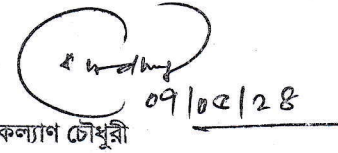 ০৭/০৫/২৪
কল্যাণ চৌধুরী